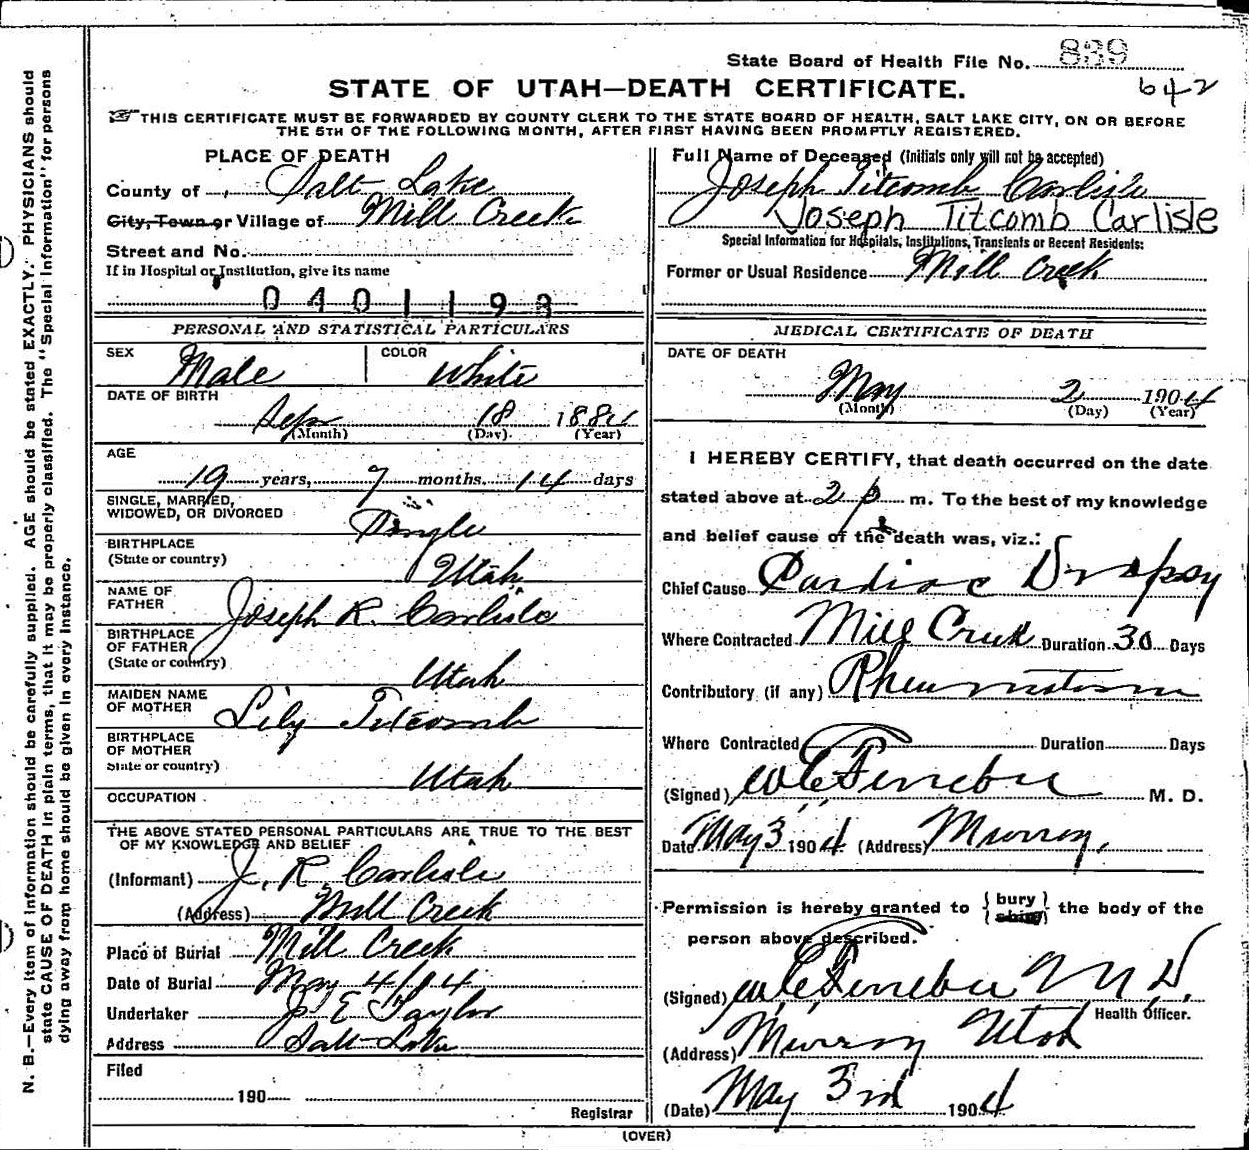 State Board of Health File No. 839
642
STATE OF UTAH—DEATH CERTIFICATE.
THIS CERTIFICATE MUST BE FORWARDED BY COUNTY CLERK TO THE STATE BOARD OF HEALTH, SALT LAKE CITY, ON OR BEFORE
THE 5TH OF THE FOLLOWING MONTH, AFTER FIRST HAVING BEEN PROMPTLY REGISTERED.
PLACE OF DEATH
County of Salt Lake
City, Town or Village of Mill Creek
Street and No.
If in Hospital or Institution, give its name
0401193
PERSONAL AND STATISTICAL PARTICULARS
SEX Male COLOR White
DATE OF BIRTH
Sep 18 1884
(Month) (Day) (Year)
AGE
19 years, 7 months, 14 days
SINGLE, MARRIED,
WIDOWED, OR DIVORCED Single
BIRTHPLACE
(State or country) Utah
NAME OF
FATHER Joseph R. Carlisle
BIRTHPLACE
OF FATHER
(State or country) Utah
MAIDEN NAME
OF MOTHER Lily Titcomb
BIRTHPLACE
OF MOTHER
State or country) Utah
OCCUPATION
THE ABOVE STATED PERSONAL PARTICULARS ARE TRUE TO THE BEST
OF MY KNOWLEDGE AND BELIEF
(Informant) J. R. Carlisle
(Address) Mill Creek
Place of Burial Mill Creek
Date of Burial May 4/04
Undertaker J E Taylor
Address Salt Lake
Filed
190
Registrar
Full Name of Deceased (Initials only will not be accepted)
Joseph Titcomb Carlisle
Joseph Titcomb Carlisle
Special Information for Hospitals, Institutions, Transients or Recent Residents:
Former or Usual Residence Mill Creek
MEDICAL CERTIFICATE OF DEATH
DATE OF DEATH
May 2 1904
(Month) (Day) (Year)
I HEREBY CERTIFY, that death occurred on the date
stated above at 2 p m. To the best of my knowledge
and belief cause of the death was, viz.:
Chief Cause Cardiac Dropsy
Where Contracted Mill Creek Duration 30 Days
Contributory (if any) Rheumatism
Where Contracted Duration Days
(Signed) M. D.
Date May 3 1904 (Address) Murray,
Permission is hereby granted to { bury } the body of the
{ ship }
person above described.
(Signed) M D.
Health Officer.
(Address) Murray Utah
(Date) May 3rd 1904
(OVER)
N. B.—Every item of information should be carefully supplied. AGE should be stated EXACTLY. PHYSICIANS should
state CAUSE OF DEATH in plain terms, that it may be properly classified. The "Special Information" for persons
dying away from home should be given in every instance.